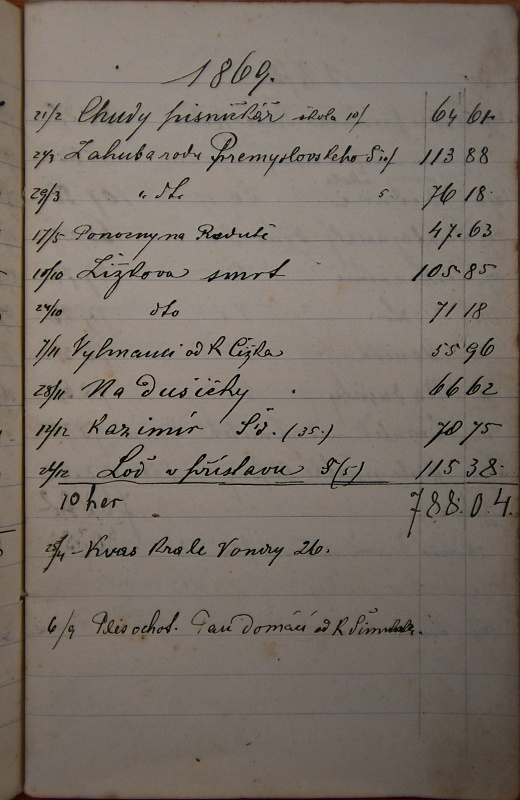 1869.
21/2 Chudy pisničkář škola 10/ 64 68
Zahuba rodu Přemyslovskeho 113 88
29/3 " dto 5 76 18
17/5 Ponocny na Redutě 47.63
10/10 Žižkova smrt 105 85
24/10 dto 71 18
7/11 Vyhnanci od R Cižka 55 96
28/11 Na Dušičky 66 62
12/12 Kazimír Šš. (35.) 78 75
24/12 Loď v přístavu (5) 115 38
10 her 788.04.
25/4 - Kvas Krale Vondry 26.
6/9 Ples ochot. Pan Domácí od R